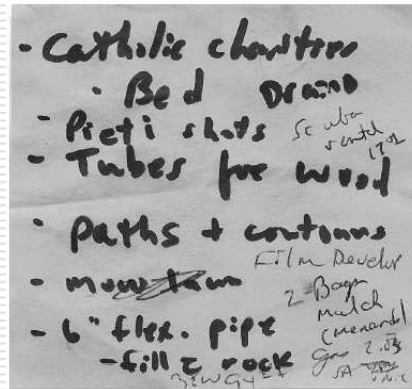 - Catholic charities
- Bed Drano
- Pieti shots
Scuba
rental
- Tubes for wood
- paths + contours
Film Develop
- mow lawn
2 Bags
mulch
(menards)
- 6" flex. pipe
- fill z rock
gas 2.03